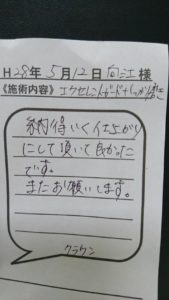 H28年5月12日 向江様
《施術内容》エクセレントガード+
納得いく仕上がり
にして頂いて良かった
です。
またお願いします。
クラウン